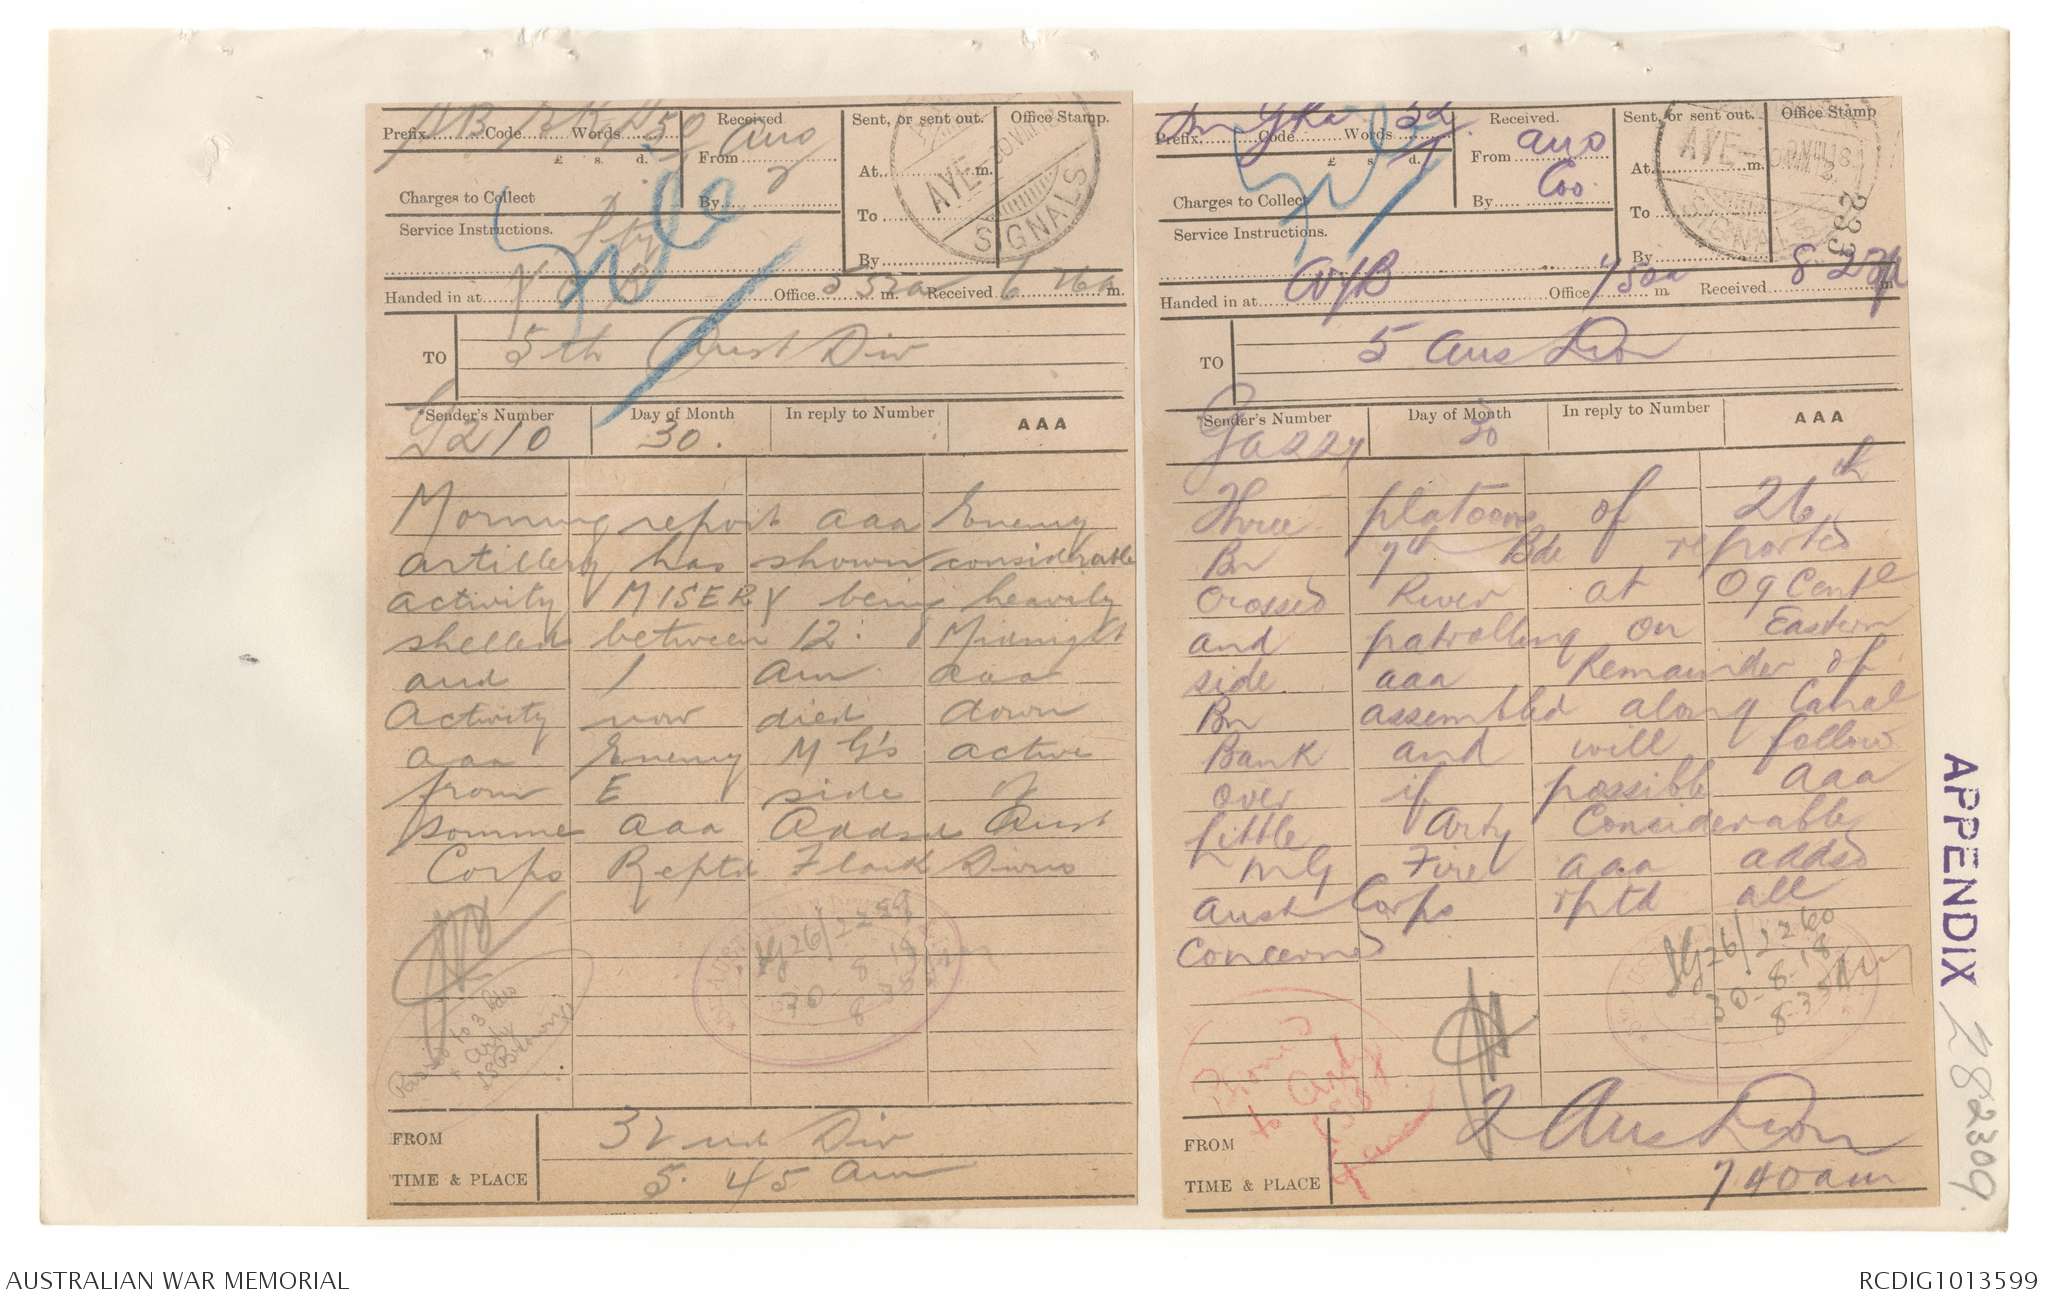 Prefix Code Words 50
Received Aus
From
£ s. d.
Charges to Collect
By
Service Instructions. Pty
Sent, or sent out.
At m.
To
By
Office Stamp.
AYE 30 VIII 18
SIGNALS
File
Handed in at Office 5 52a Received 6 26a m.
TO 5th Aust Div
Sender's Number Day of Month In reply to Number AAA
G210 30.
Morning report aaa Enemy
artillery has shown considerable
activity MISERY being heavily
shelled between 12. Midnight
and 1 am aaa
Activity now died down
aaa Enemy MG's active
from E side of
Somme aaa Addsd Aust
Corps Reptd Flank Divns
SG26/2259
30-8-18
Passed to 3 Bdes
+ Arty
FROM 32nd Div
TIME & PLACE 5.45 am
Prefix Code Words 52
Received.
From Aus
£ s. d.
Charges to Collect
By Coo.
Service Instructions.
Sent, or sent out.
At m.
To
By
Office Stamp
AYE
SIGNALS
233
File
Handed in at Office 750a m Received 8-23a m
TO 5 Aus Dion
Sender's Number Day of Month In reply to Number AAA
Ga227 30
Three platoons of 26th
Bn 7th Bde reported
crossed River at O9 Central
and patrolling on Eastern
side aaa Remainder of
Bn assembled along Canal
Bank and will follow
over if possible aaa
Little Arty Considerable
MG Fire aaa added
Aust Corps rptd all
Concerned
SG26/2260
30-8-18
8-35 AM
to Arty
FROM 2 Aus Dion
TIME & PLACE 740am
APPENDIX 282309
AUSTRALIAN WAR MEMORIAL
RCDIG1013599